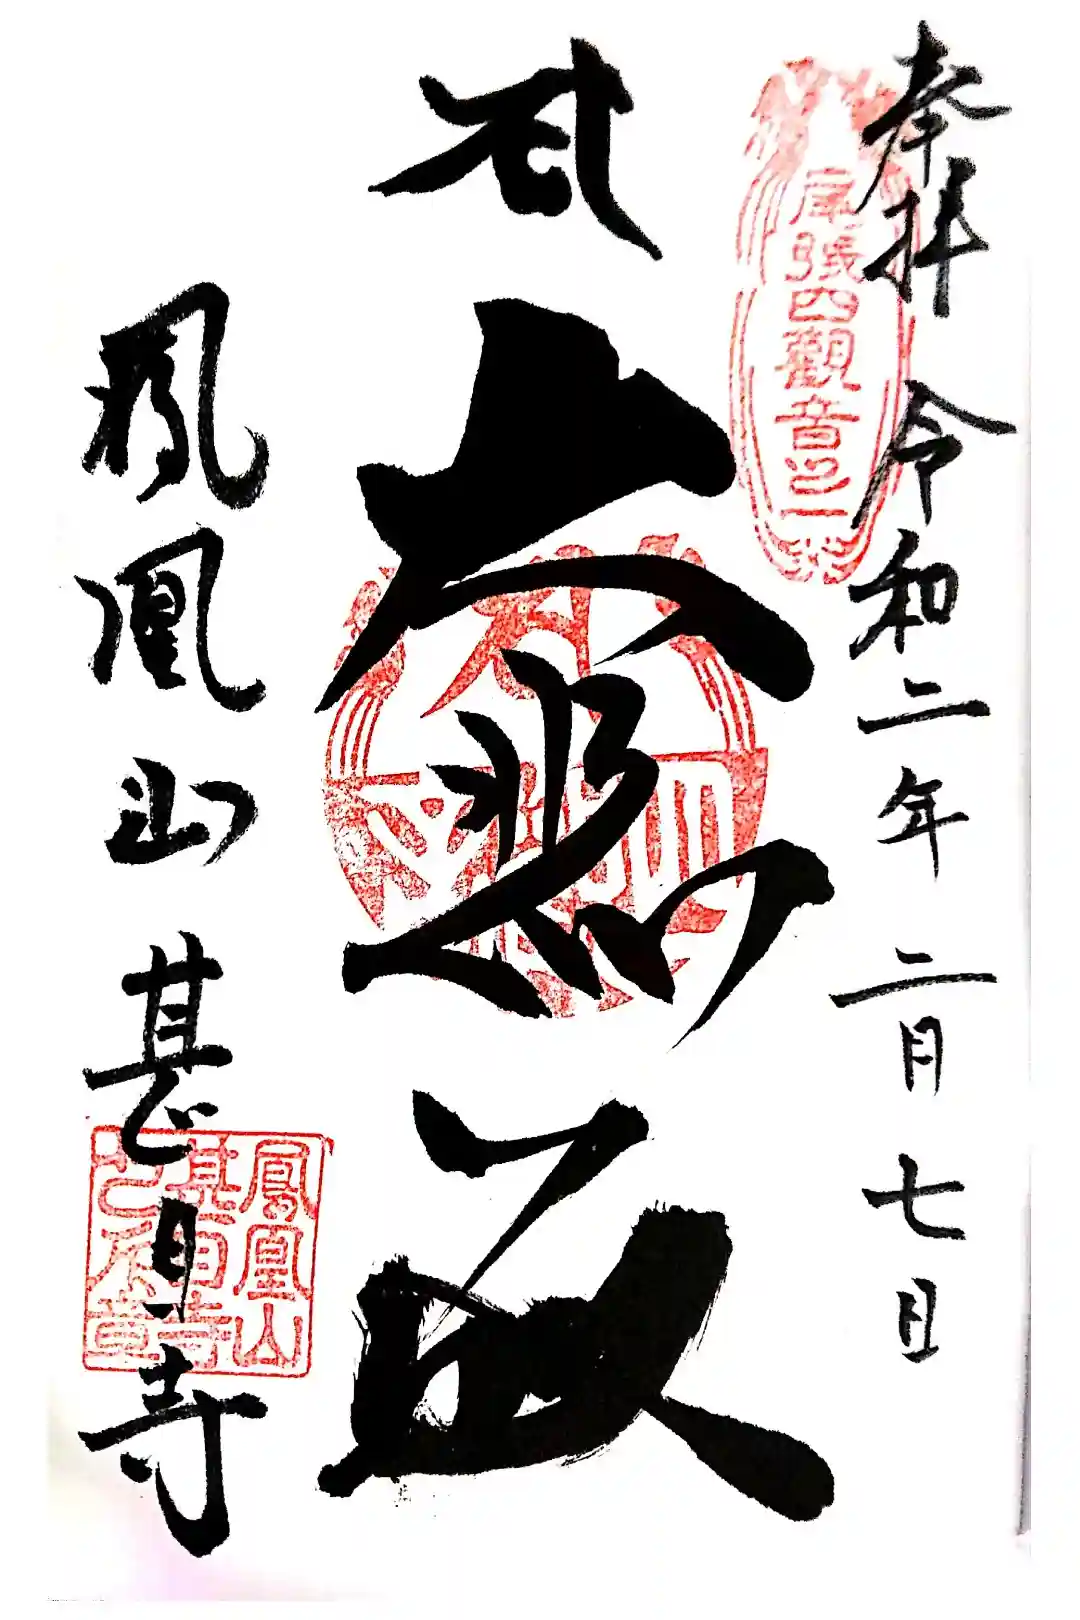 奉拝 令和二年二月七日
尾張四観音之一
大悲殿
鳳凰山甚目寺
鳳凰山
甚目寺
之派章